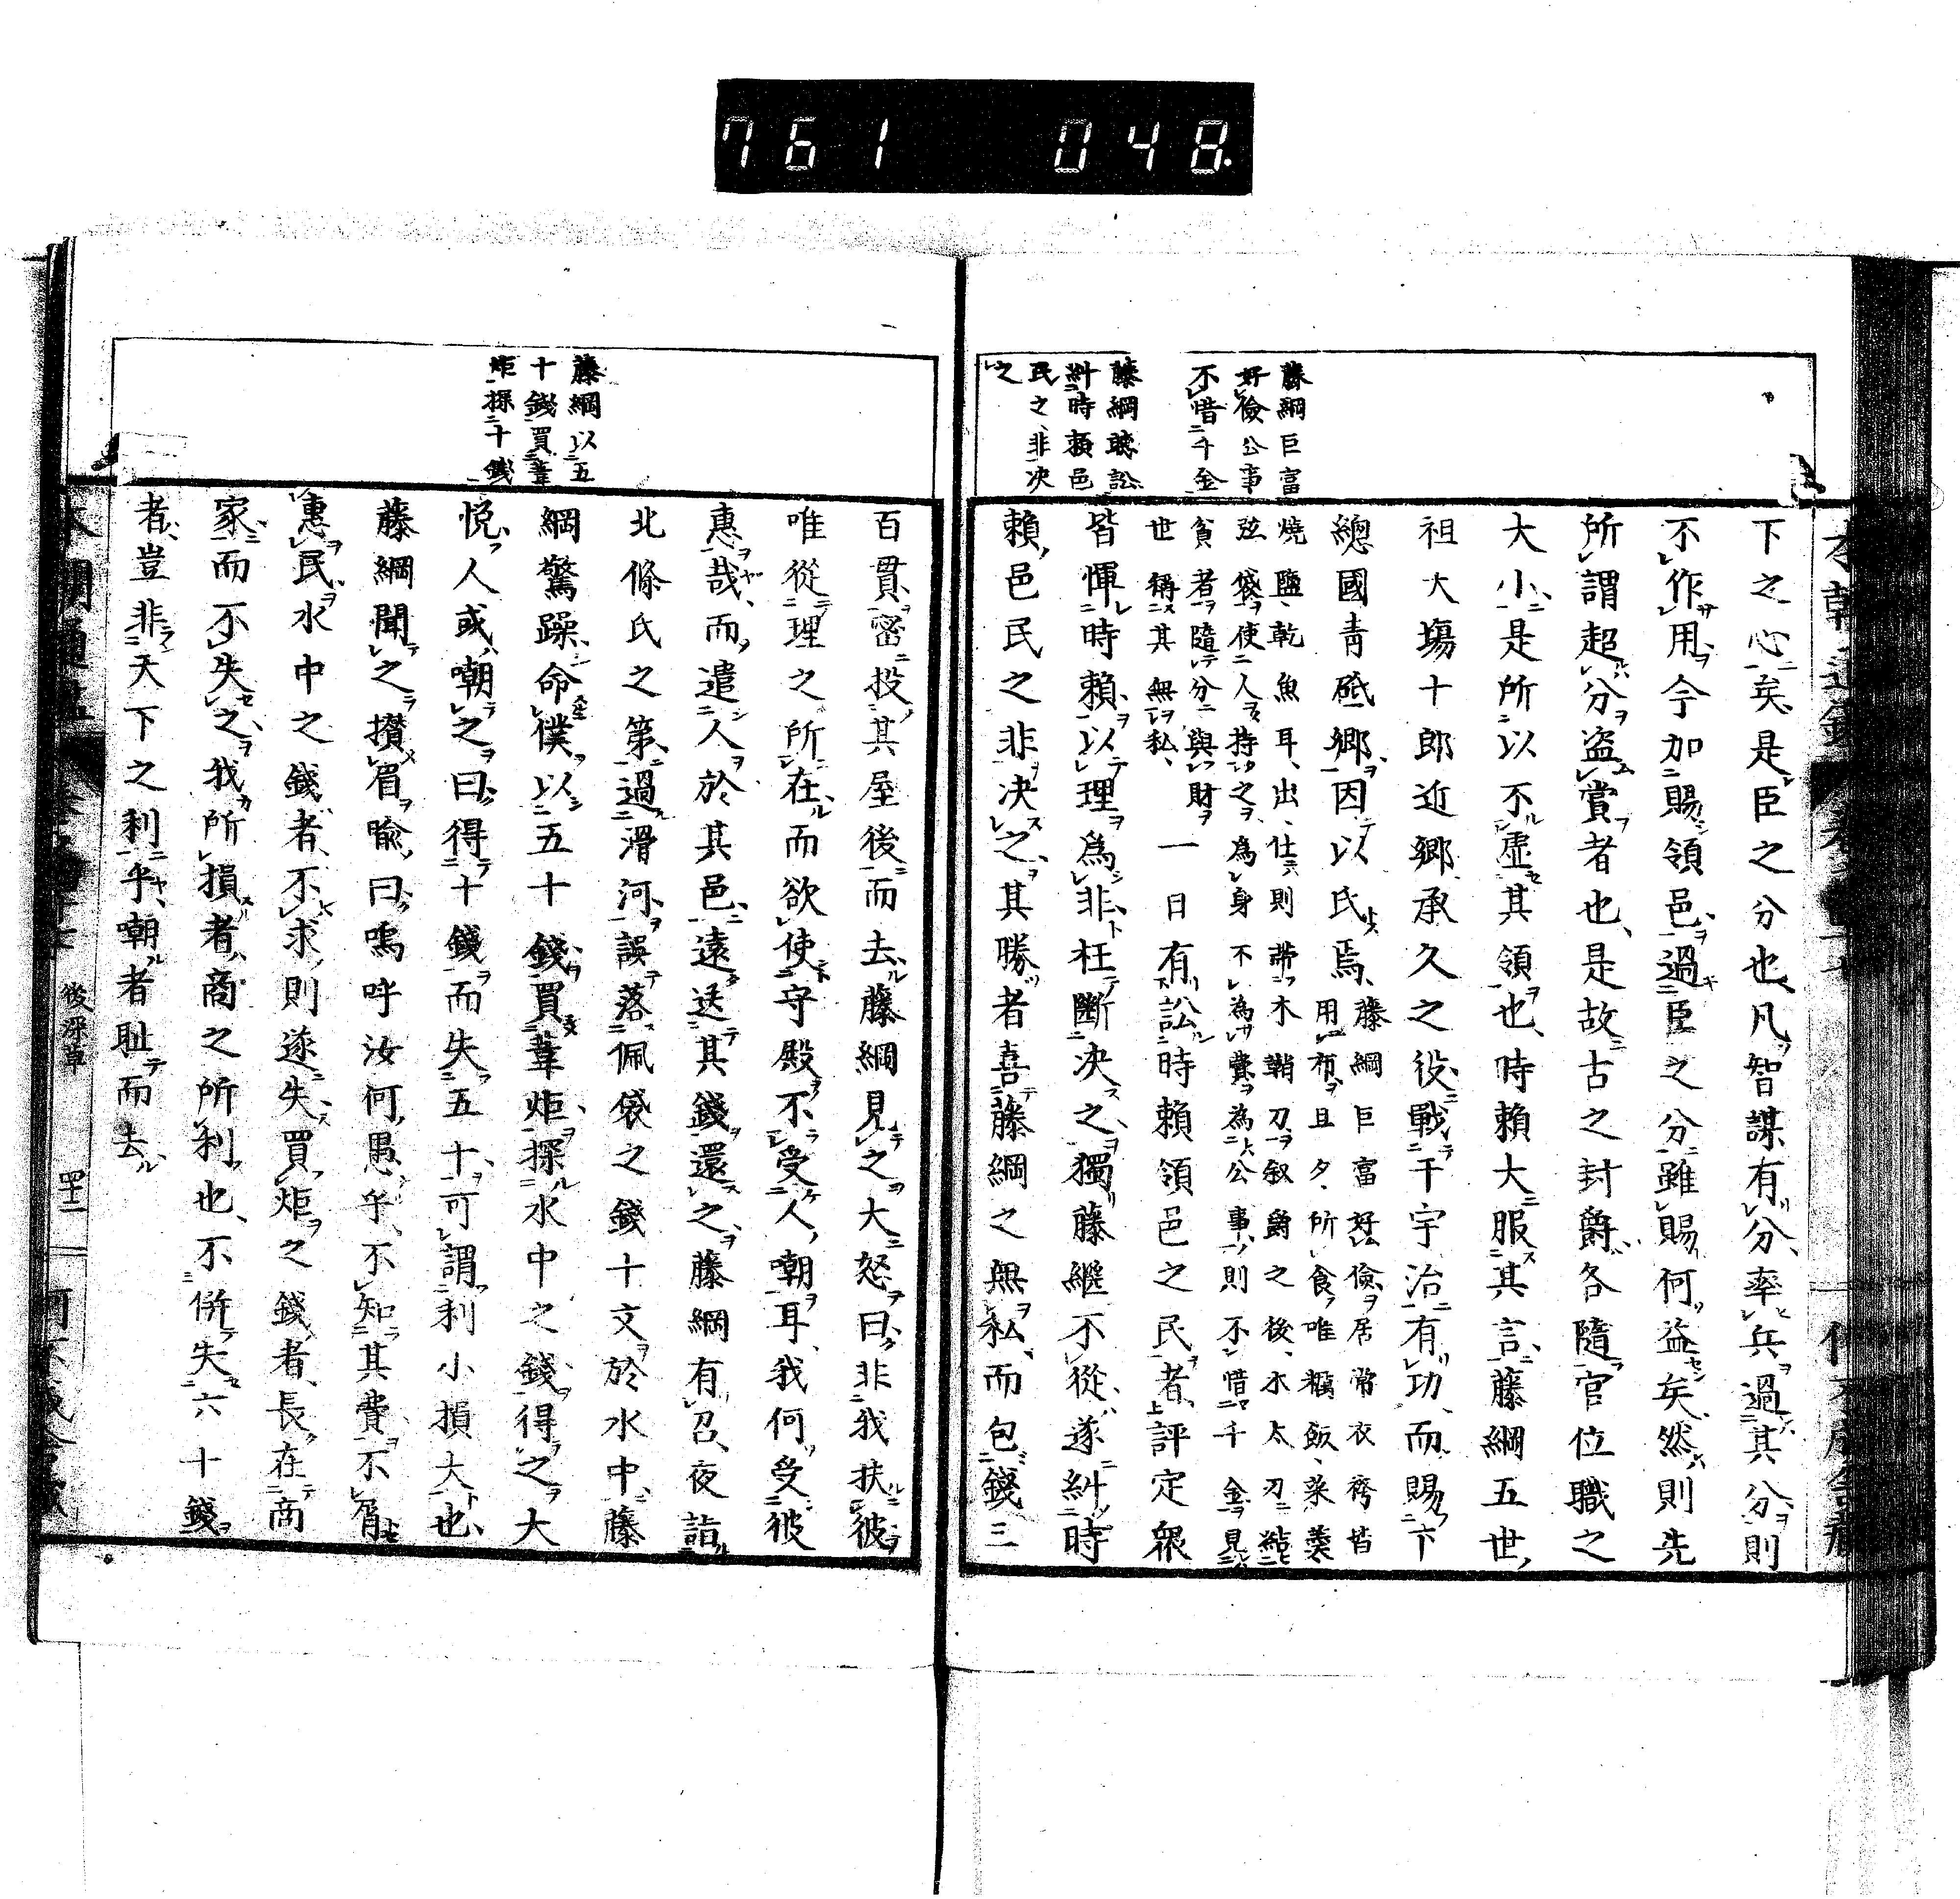 761 048.
藤綱巨富
好儉公事
不惜千金
藤綱聴訟
糾時頼邑
民之非决
之
下之心矣是臣之分也凡智謀有分率兵過其分則
不作用今加賜領邑過臣之分雖賜何益矣然則先
所謂超分盗賞者也是故古之封爵各隨官位職之
大小是所以不虚其領也時頼大服其言藤綱五世
祖大塲十郎近郷承久之役戰于宇治有功而賜下
總國青砥郷因以氏焉藤綱巨富好儉居常衣袴皆
用布且夕所食唯糲飯菜羹
燒鹽乾魚耳出仕則帶木鞘刀叙爵之後木太刀結
弦袋使人持之為身不為費為公事則不惜千金見
貧者隨分與財
世稱其無私一日有訟時頼領邑之民者評定衆
皆憚時頼以理為非枉斷决之獨藤繼不從遂糾時
頼邑民之非决之其勝者喜藤綱之無私而包錢三
藤綱以五
十錢買葦
炬探十錢
百貫密投其屋後而去藤綱見之大怒曰非我扶彼
唯從理之所在而欲使守殿不受人嘲耳我何受彼
惠哉而遣人於其邑遠送其錢還之藤綱有召夜詣
北條氏之第過滑河誤落佩袋之錢十文於水中藤
綱驚躁命僕以五十錢買葦炬探水中之錢得之大
悦人或嘲之曰得十錢而失五十可謂利小損大也
藤綱聞之攢眉喩曰嗚呼汝何愚乎不知其費不屑
惠民水中之錢者不求則遂失買炬之錢者長在商
家而不失之我所損者商之所利也不併失六十錢
者豈非天下之利乎嘲者耻而去
後深草
四十二